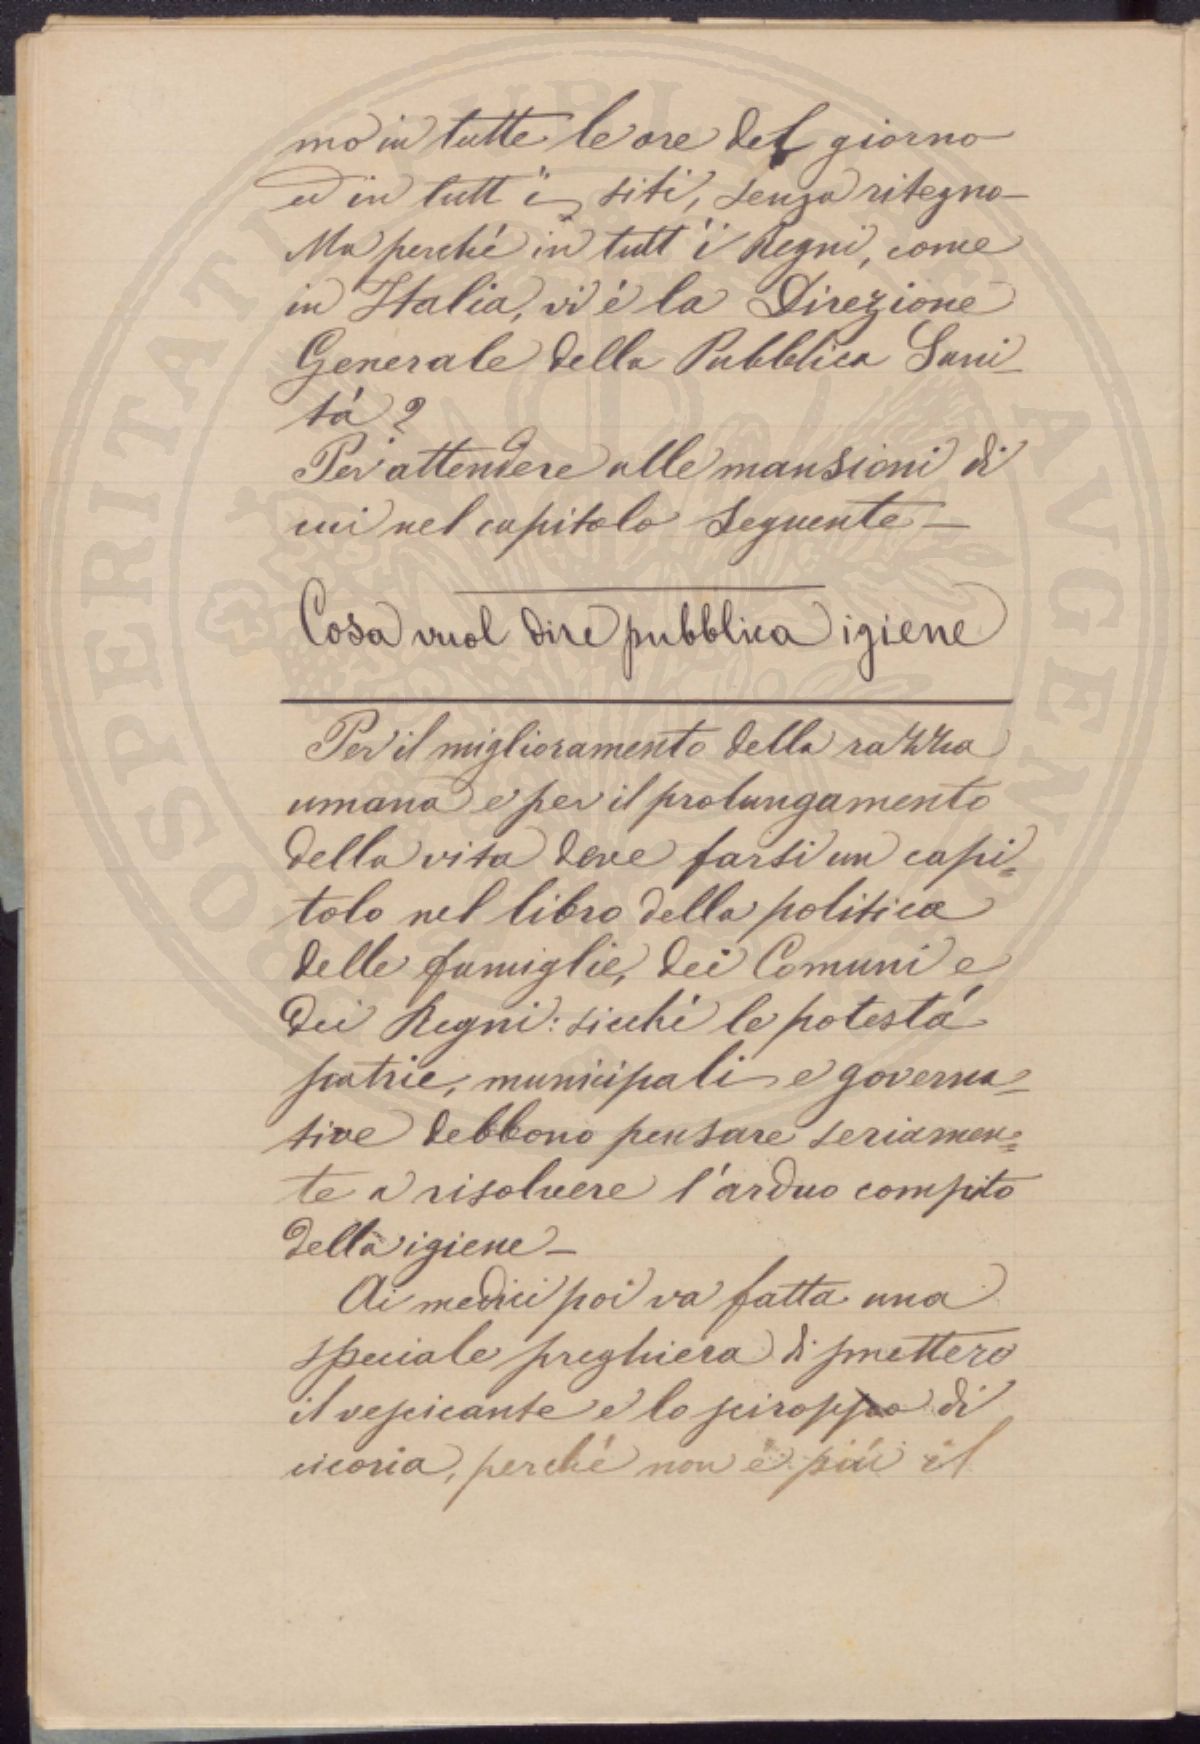 mo in tutte le ore del giorno
ed in tutt'i siti, senza ritegno—
Ma perché in tutt'i Regni, come
in Italia, vi é la Direzione
Generale della Pubblica Sani-
tá?
Per attendere alle mansioni di
cui nel capitolo seguente—
Cosa vuol dire pubblica igiene
Per il miglioramento della razza
umana e per il prolungamento
della vita deve farsi un capi=
tolo nel libro della politica
delle famiglie, dei Comuni e
dei Regni: sicché le potestá
patrie, municipali e governa=
tive debbono pensare seriamen=
te a risolvere l'arduo compito
della igiene—
Ai medici poi va fatta una
speciale preghiera di smettere
il vescicante e lo sciroppo di
cicoria, perché non é piú il
PROSPERITATI PUBLICAE AVGENDAE